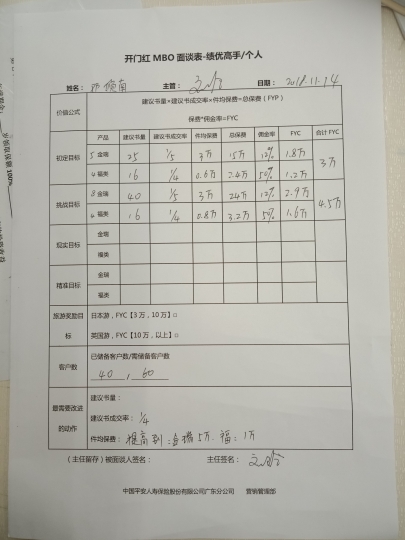 开门红 MBO 面谈表-绩优高手/个人
姓名： 主管： 日期：2018.11.14
价值公式 建议书量*建议书成交率*件均保费=总保费（FYP）
保费*佣金率=FYC
产品 建议书量 建议书成交率 件均保费 总保费 佣金率 FYC 合计 FYC
初定目标 5 金瑞 25 1/5 3万 15万 12% 1.8万 3万
4 福类 16 1/4 0.6万 2.4万 50% 1.2万
挑战目标 8 金瑞 40 1/5 3万 24万 12% 2.9万 4.5万
4 福类 16 1/4 0.8万 3.2万 50% 1.6万
现实目标 金瑞
福类
精准目标 金瑞
福类
旅游奖励目标 日本游，FYC【3 万，10 万】□
英国游，FYC【10 万，以上】□
客户数 已储备客户数/需储备客户数
40 , 60
最需要改进的动作 建议书量：
建议书成交率：1/4
件均保费：提高到：金瑞5万. 福：1万
（主任留存）被面谈人签名： 主任签名：
中国平安人寿保险股份有限公司广东分公司 营销管理部